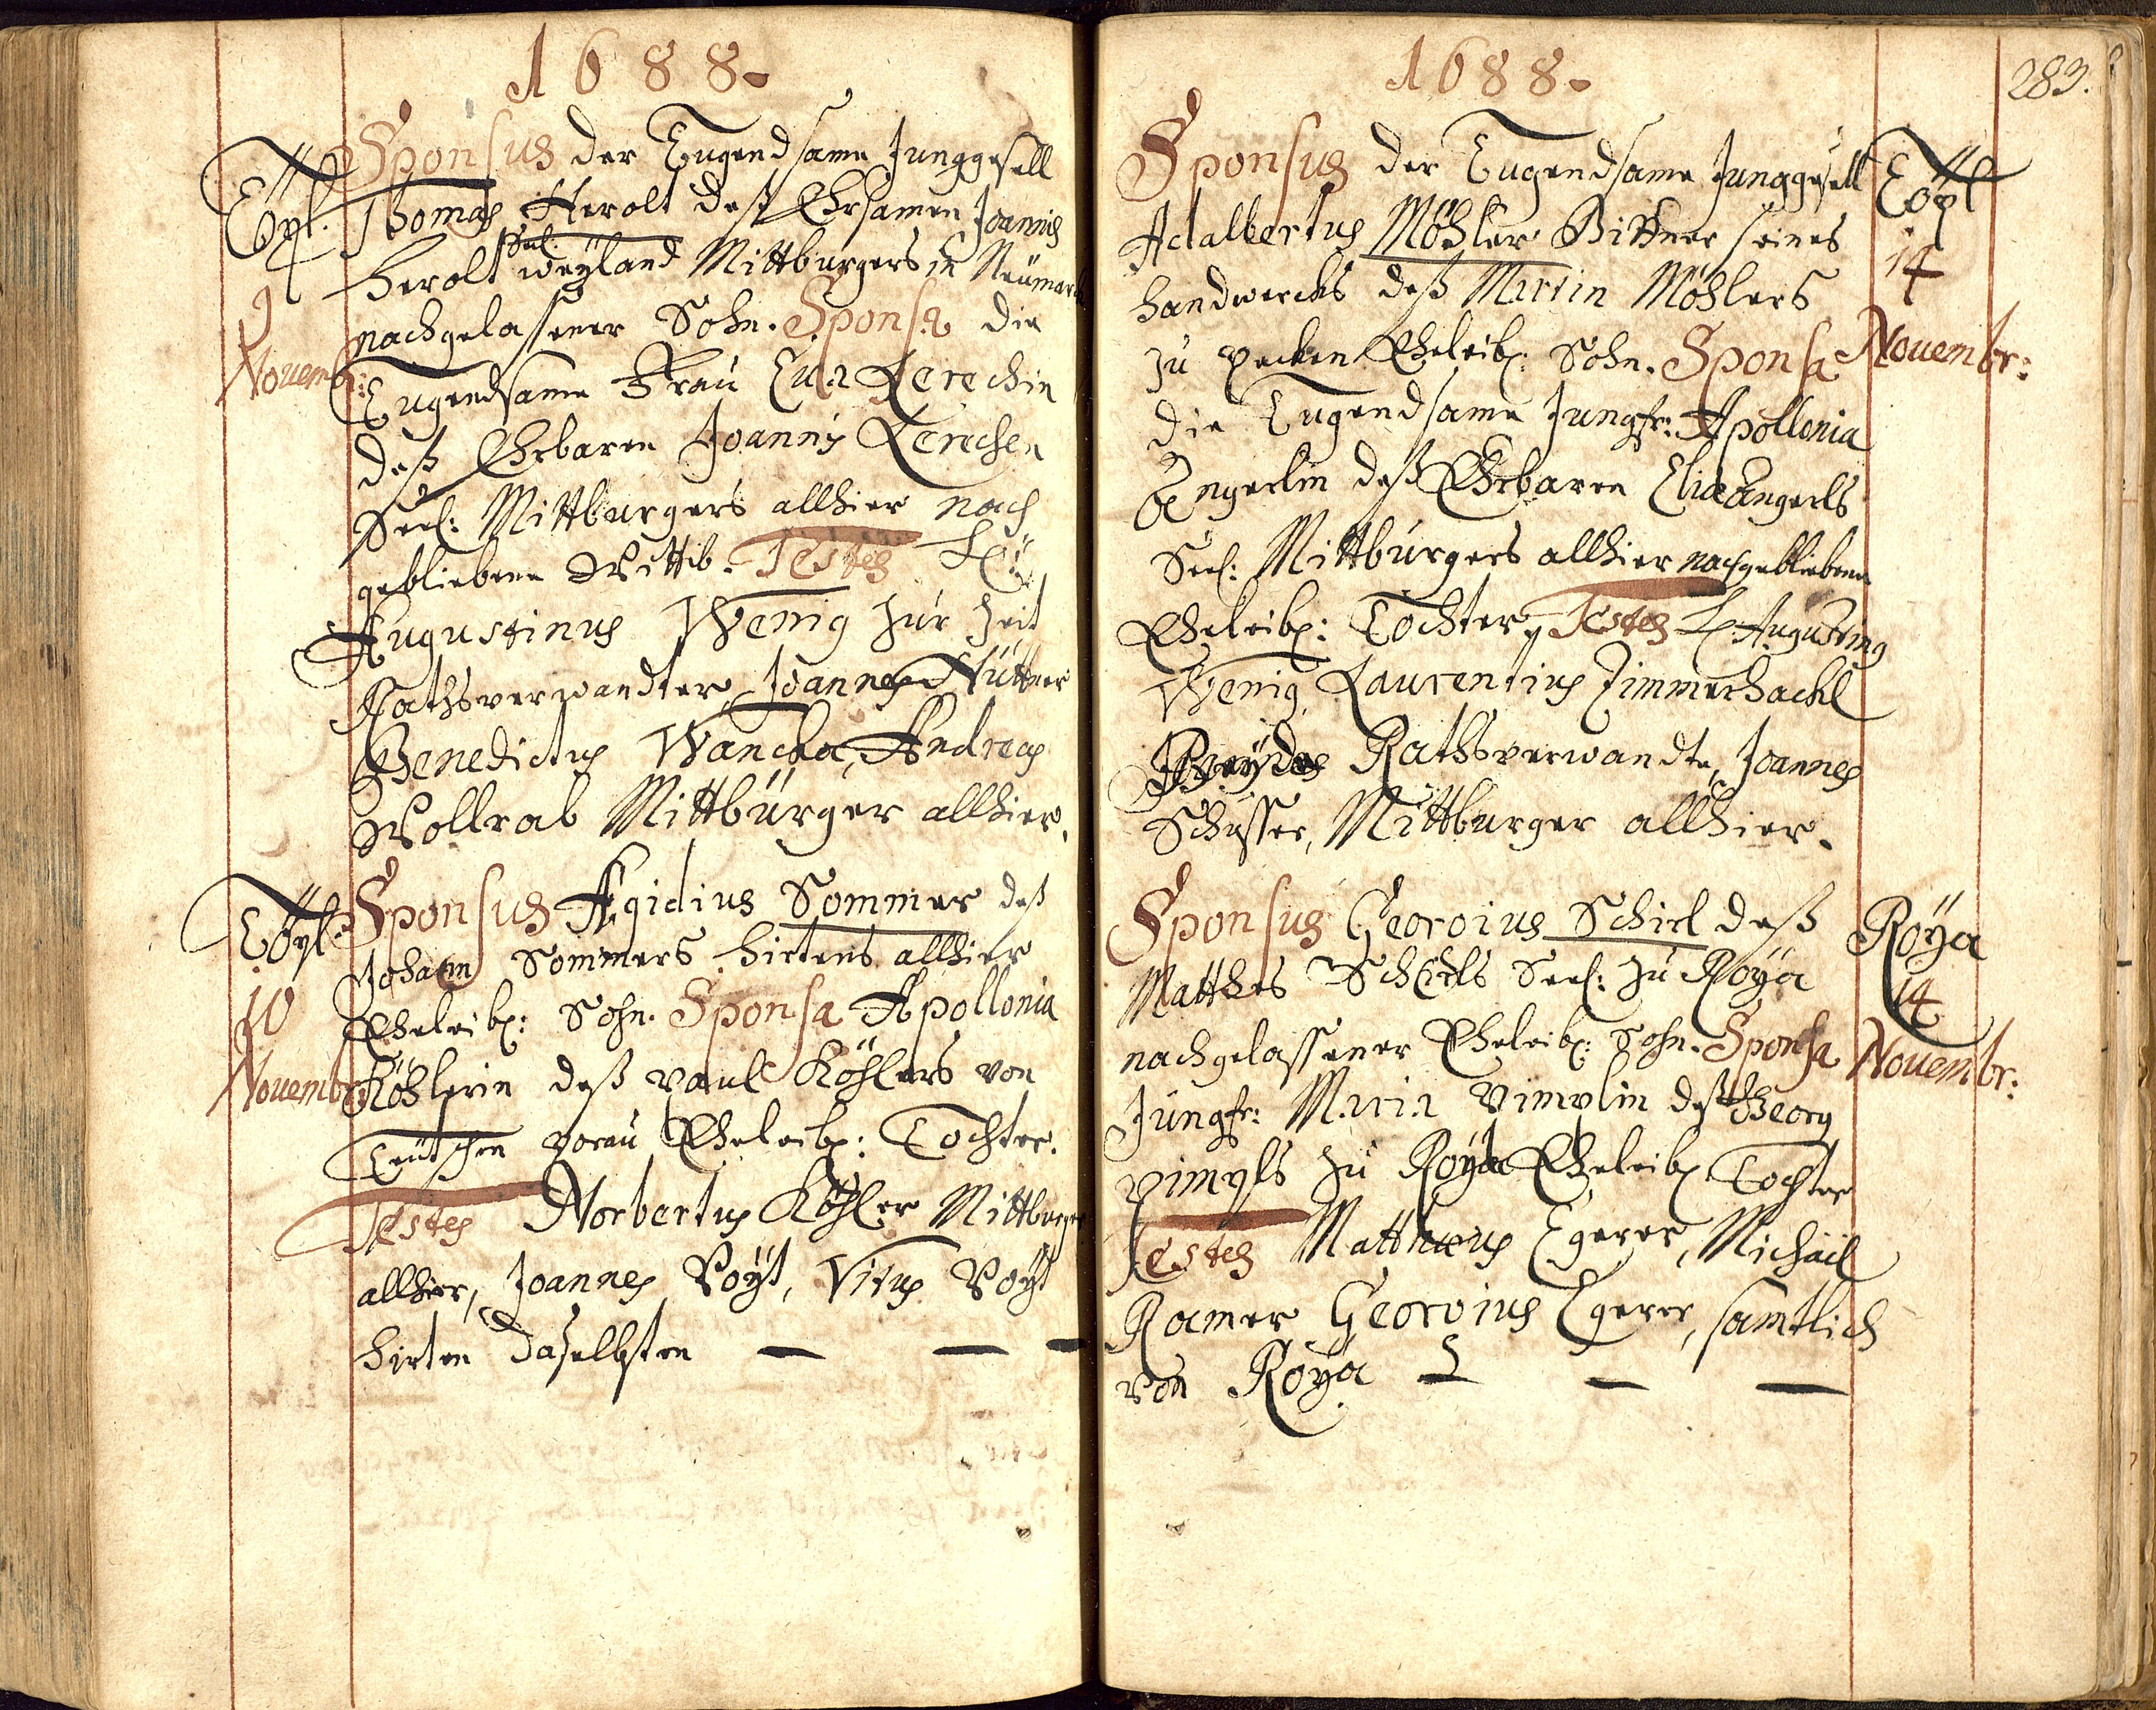 1688.
Töpl.
9
Novembr:
Sponsus der Tugendsame Junggesell
Thomas Herolt deß Ehrsamen Joannis
Herolt Seel: weÿland Mittburgers in Neumark
nachgelassener Sohn. Sponsa die
Tugendsame Frau Eva Lerechin
deß Ehrbaren Joannis Lerechen
Seel: Mittburgers allhier nach
gebliebene Wittib. Testes
Augustinus Wenig zur Zeit
Rathsverwandter, Joannes Hüttner
Benedictus Wancka, Andreas
Wollrab Mittbürger allhier.
Töpl.
10
Novembr:
Sponsus Ægidius Sommer deß
Johann Sommers Hirtens allhier
Eheleibl: Sohn. Sponsa Apollonia
Köhlerin deß Paul Köhlers von
Teütschen Borau Eheleibl: Tochter.
Testes Norbertus Köhler Mittburger
allhier, Joannes Voÿt, Vitus Voÿt
Hirten daselbsten
1688.
283.
Töpl
14
Novembr:
Sponsus der Tugendsame Junggesell
Adalbertus Möhler Bittner seines
Handwercks deß Martin Möhlers
zu Pecken Eheleibl: Sohn. Sponsa
die Tugendsame Jungfr: Apollonia
Angerlin deß Ehrbaren Eliæ Angerls
Seel: Mittbürgers allhier nachgebliebene
Eheleibl: Tochter, Testes Augustinus
Wenig Laurentius Zimmerhackl
Beÿde Rathsverwandte, Joannes
Schusser, Mittburger allhier.
Roÿa
14
Novembr:
Sponsus Georgius Schirl deß
Matthes Schirls Seel: zu Roÿa
nachgelassener Eheleibl: Sohn. Sponsa
Jungfr: Maria Pimplin deß Georg
Pimpls zu Roÿa Eheleibl Tochter
Testes Matthæus Egerer, Michäil
Ramer Georgius Egerer, samtlich
von Roÿa